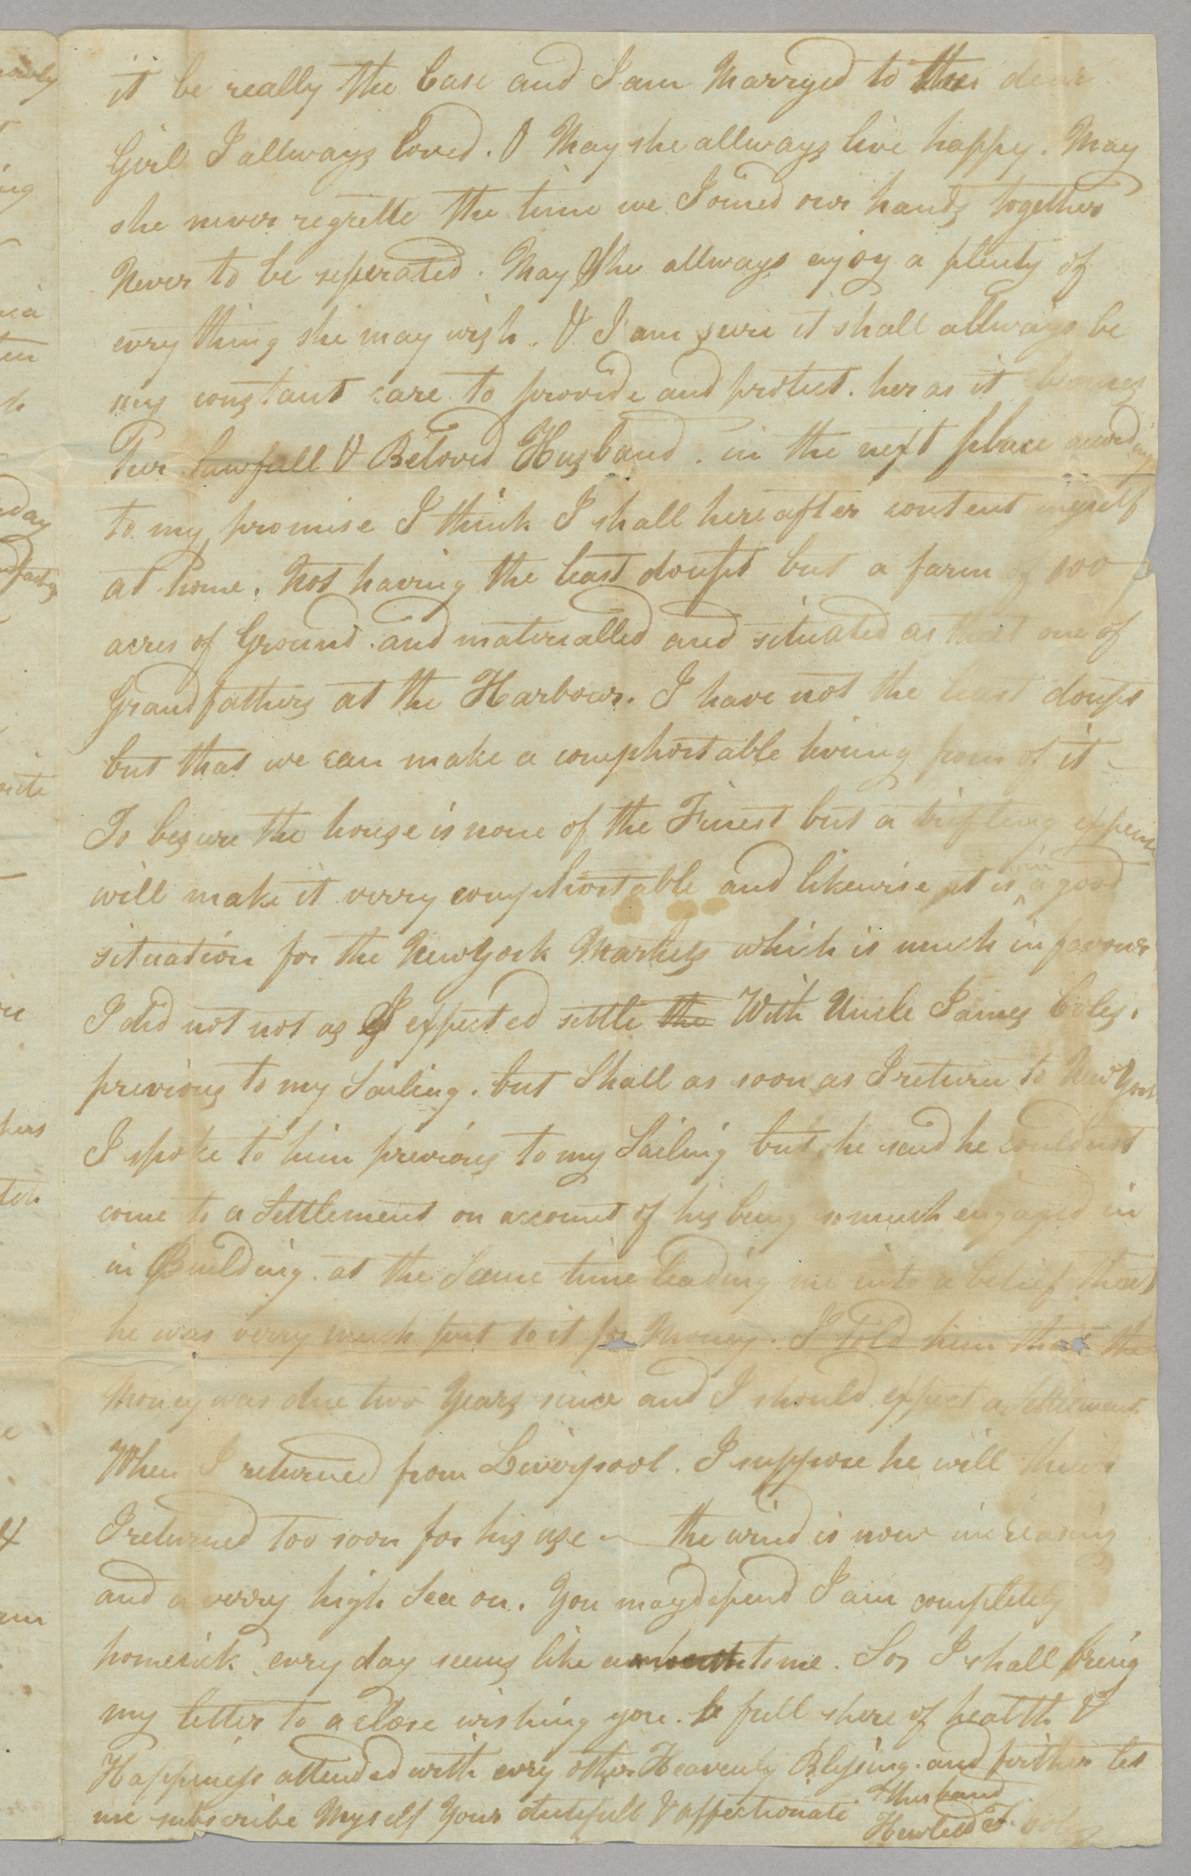 it be really the Case and I am Marryed to the dear
Girl I allways Loved. O May she allways live happy. May
she never regrette the time we Joined our hands together
Never to be seperated. May She allways enjoy a plenty of
evry thing she may wish. & I am sure it shall allways be
my constant care to provide and protect. her as it becomes
her lawfull & Beloved Husband. in the next place according
to my promise I think I shall hereafter content myself
at home. Not having the least doupt but a farm of 100
acres of Ground. and materialled and situated as that one of
Grandfathers at the Harbour. I have not the least doupt
but that we can make a comphortable living from of it –
To besure the house is none of the Finest but a trifling expence
will make it verry comphortable and likewise it is in a good
situation for the New York Markets which is much in favour
I did not not as I expected settle the With Uncle James Coles.
previous to my Sailing. but Shall as soon as I return to New York
I spoke to him previous to my Sailing but he said he could not
come to a Settlement on account of his being so much engaged in
in Building. at the Same time leading me into a belief that
he was verry much put to it for Money. I Told him that the
Money was due two Years since and I should expect a Settlement
When I returned from Liverpool. I suppose he will think
I returned too soon for his use – the wind is now increasing
and a verry high Sea on. You may depend I am completely
homesick. evry day seems like a month to me. So I shall bring
my letter to a close wishing you. a full share of health &
Happiness attended with evry other Heavenly Blessing. and further let
me subscribe Myself Your dutifull & affectionate Husband
Hewlett Coles